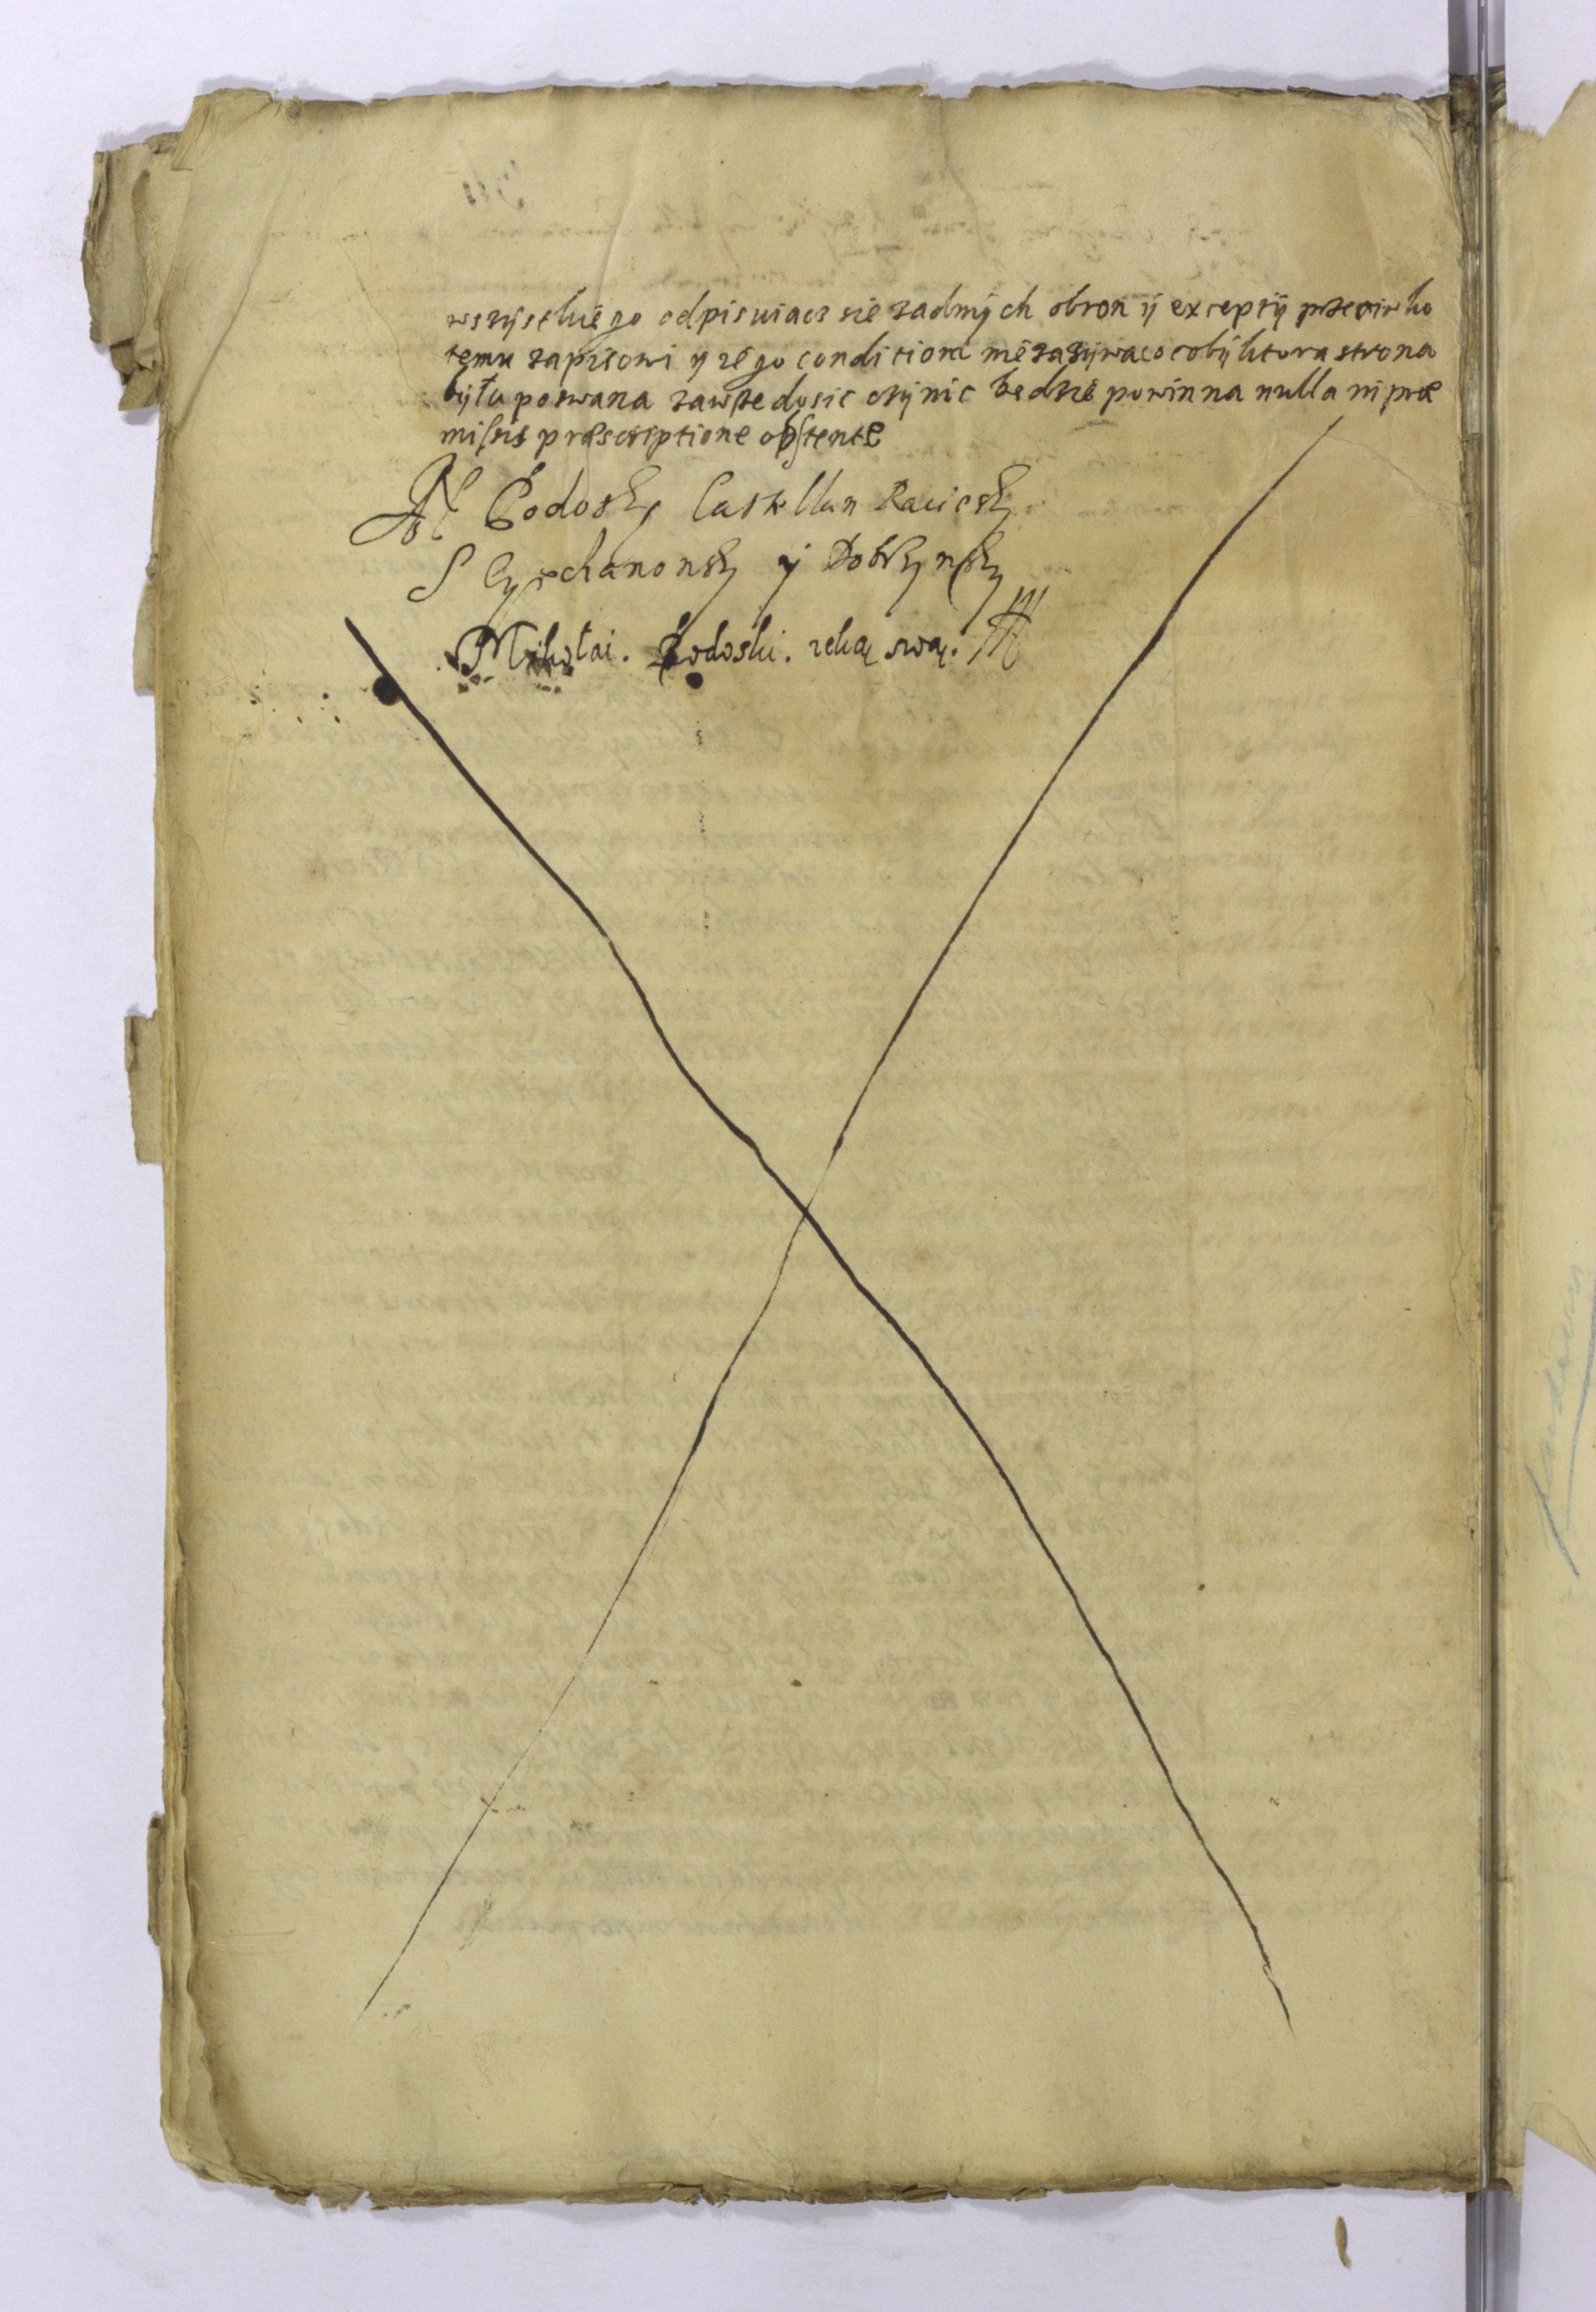 wszÿstkiego odpisuiacz sie zadnÿch obron ÿ exceptÿ przeciwko
temu zapisowi ÿ iego conditiom nie zazÿwaiac o cobÿ ktora strona
bÿła pozwana zawsze dosic czÿnic bedzie powinna nulla in præ
missis præscriptione obstente
Podosky Castellan Raciesky
S Cyechanonsky ÿ Dobrzynsky
Mikołai. Podoski. reką swą.